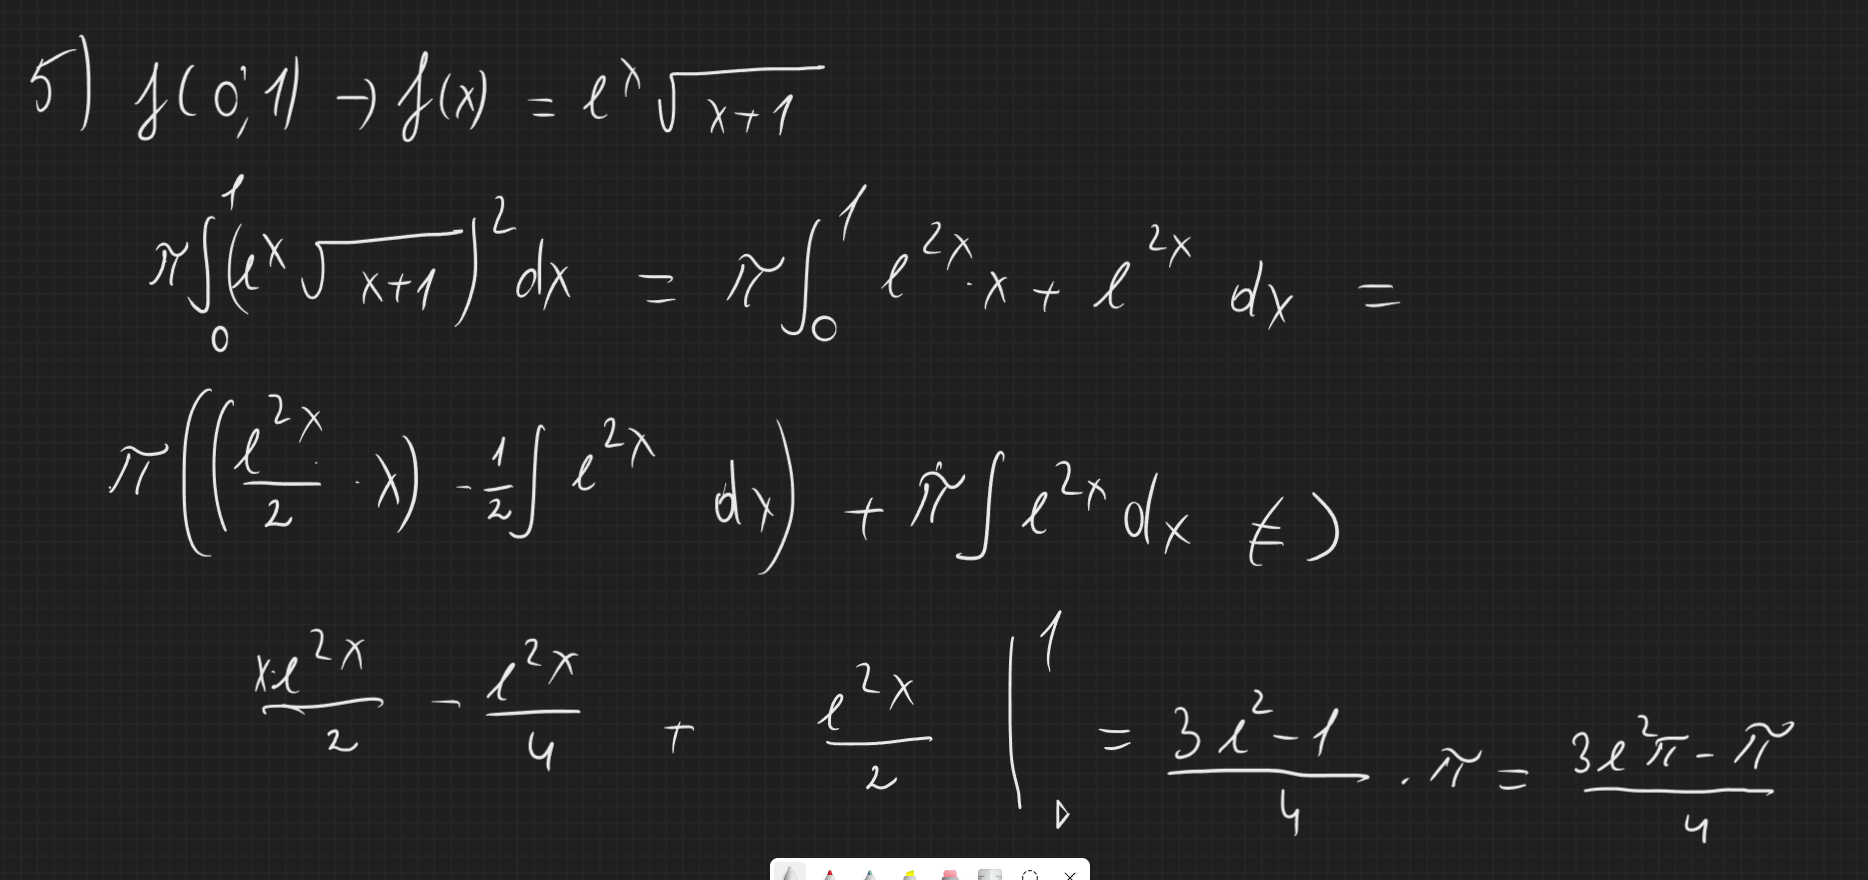 5) f(0;1) → f(x) = e^x √(x+1)
π∫₀¹(e^x √(x+1))² dx = π∫₀¹ e^{2x}·x + e^{2x} dx =
π((e^{2x}/2 · x) - 1/2 ∫ e^{2x} dx) + π∫ e^{2x} dx (=)
x·e^{2x}/2 - e^{2x}/4 + e^{2x}/2 |₀¹ = (3e²-1)/4 · π = (3e²π - π)/4